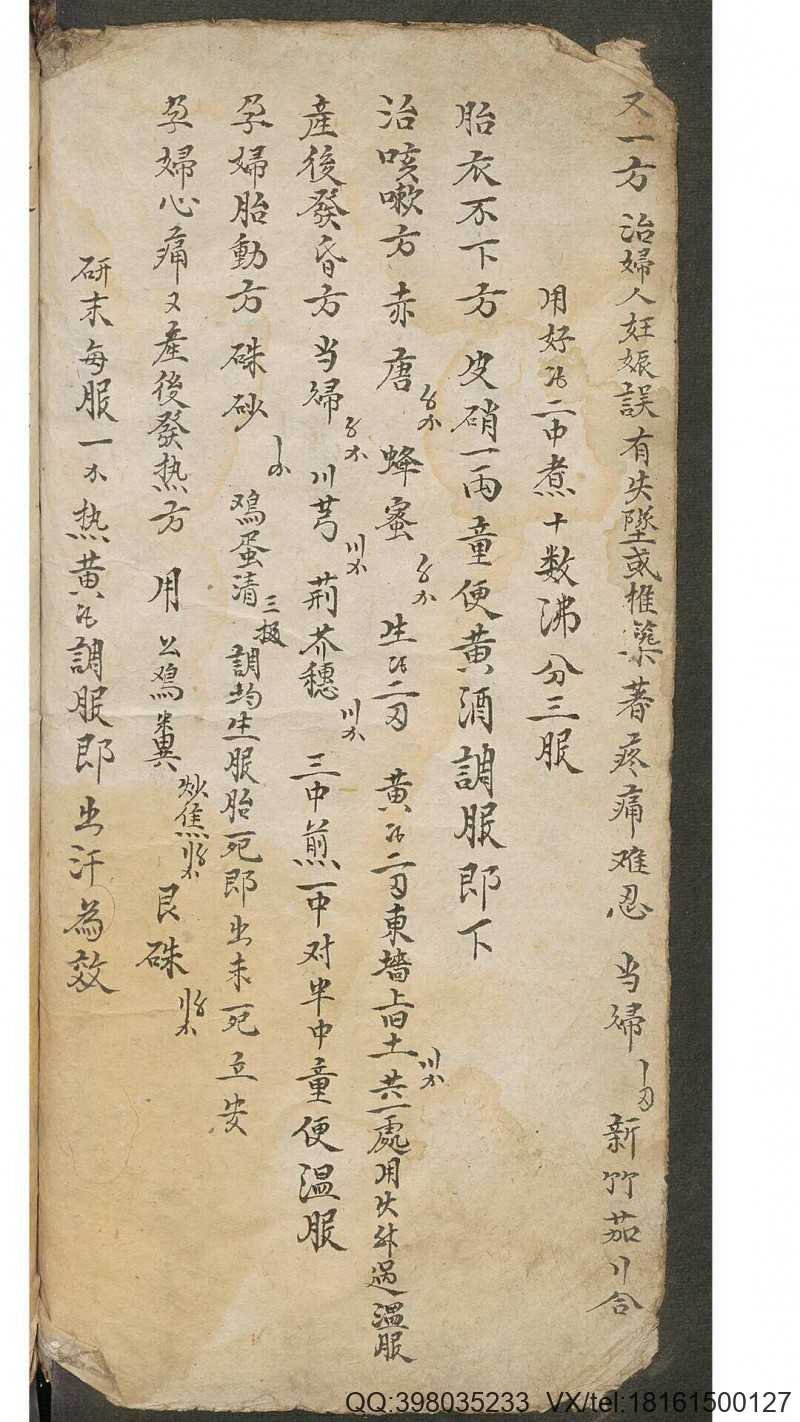 又一方 治婦人妊娠誤有失墜或推築著疼痛难忍 当归 新竹茹 〢合
用好 二中煮十数沸分三服
胎衣不下方 皮硝一両童便黄酒調服即下
治咳嗽方 赤唐 蜂蜜 生 二 黄 二 東墙上旧土〢 共一處用 过温服
產後發昏方 当归 川芎〢 荊芥穗〢 三中煎一中对半中童便温服
孕婦胎動方 硃砂〡 鸡蛋清三 調均生服胎死即出未死立安
孕婦心痛又產後發热方 用公鸡糞炒焦 艮硃
研末每服一 热黄 調服即出汗為效
QQ:398035233 VX/tel:18161500127